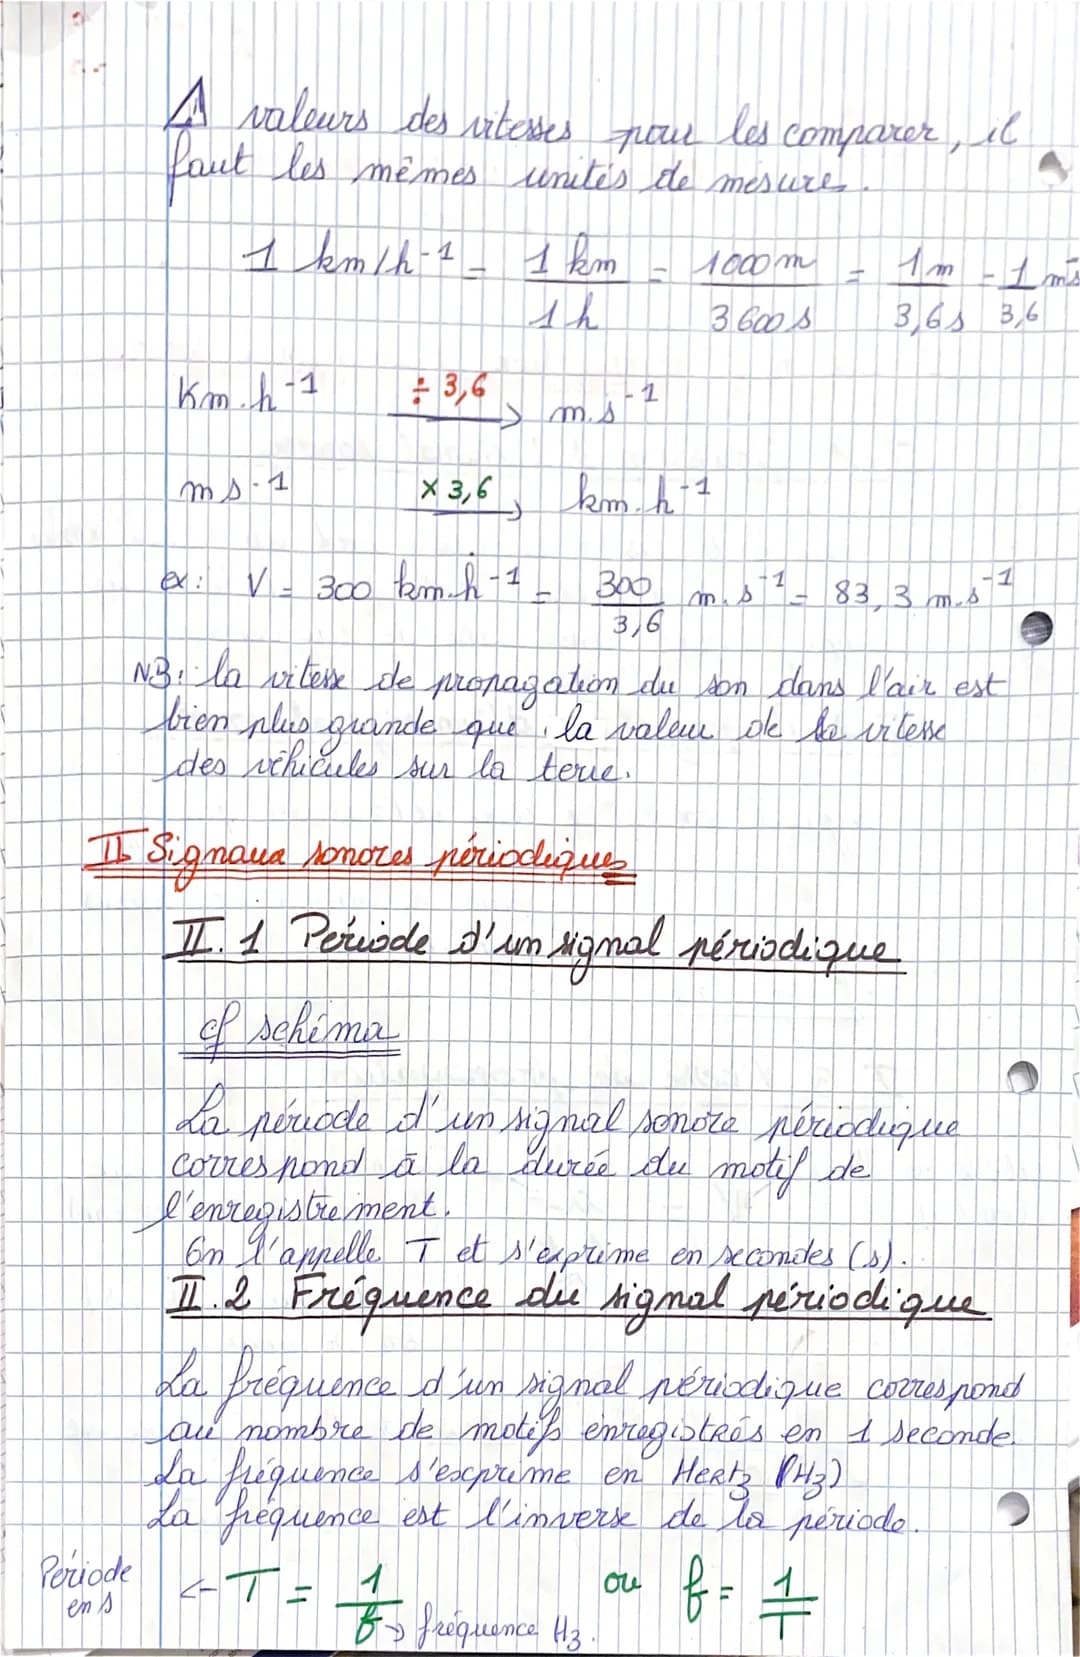 ⚠ valeurs des vitesses pour les comparer, il
faut les mêmes unités de mesure.
1 km/h-1 = 1 km / 1 h = 1000 m / 3600 s = 1 m / 3,6 s = 1 / 3,6 ms
Km.h-1 ÷ 3,6 → m.s-1
ms-1 × 3,6 → km.h-1
ex: V = 300 km.h-1 = 300 / 3,6 m.s-1 = 83,3 m.s-1
NB: la vitesse de propagation du son dans l'air est
bien plus grande que la valeur de la vitesse
des véhicules sur la terre.
II Signaux sonores périodiques
II.1 Période d'un signal périodique
cf schéma
La période d'un signal sonore périodique
correspond à la durée du motif de
l'enregistrement.
On l'appelle T et s'exprime en secondes (s).
II.2 Fréquence du signal périodique
La fréquence d'un signal périodique correspond
au nombre de motifs enregistrés en 1 seconde.
La fréquence s'exprime en Hertz (Hz)
La fréquence est l'inverse de la période.
Période en s ← T = 1 / f → fréquence Hz. ou f = 1 / T